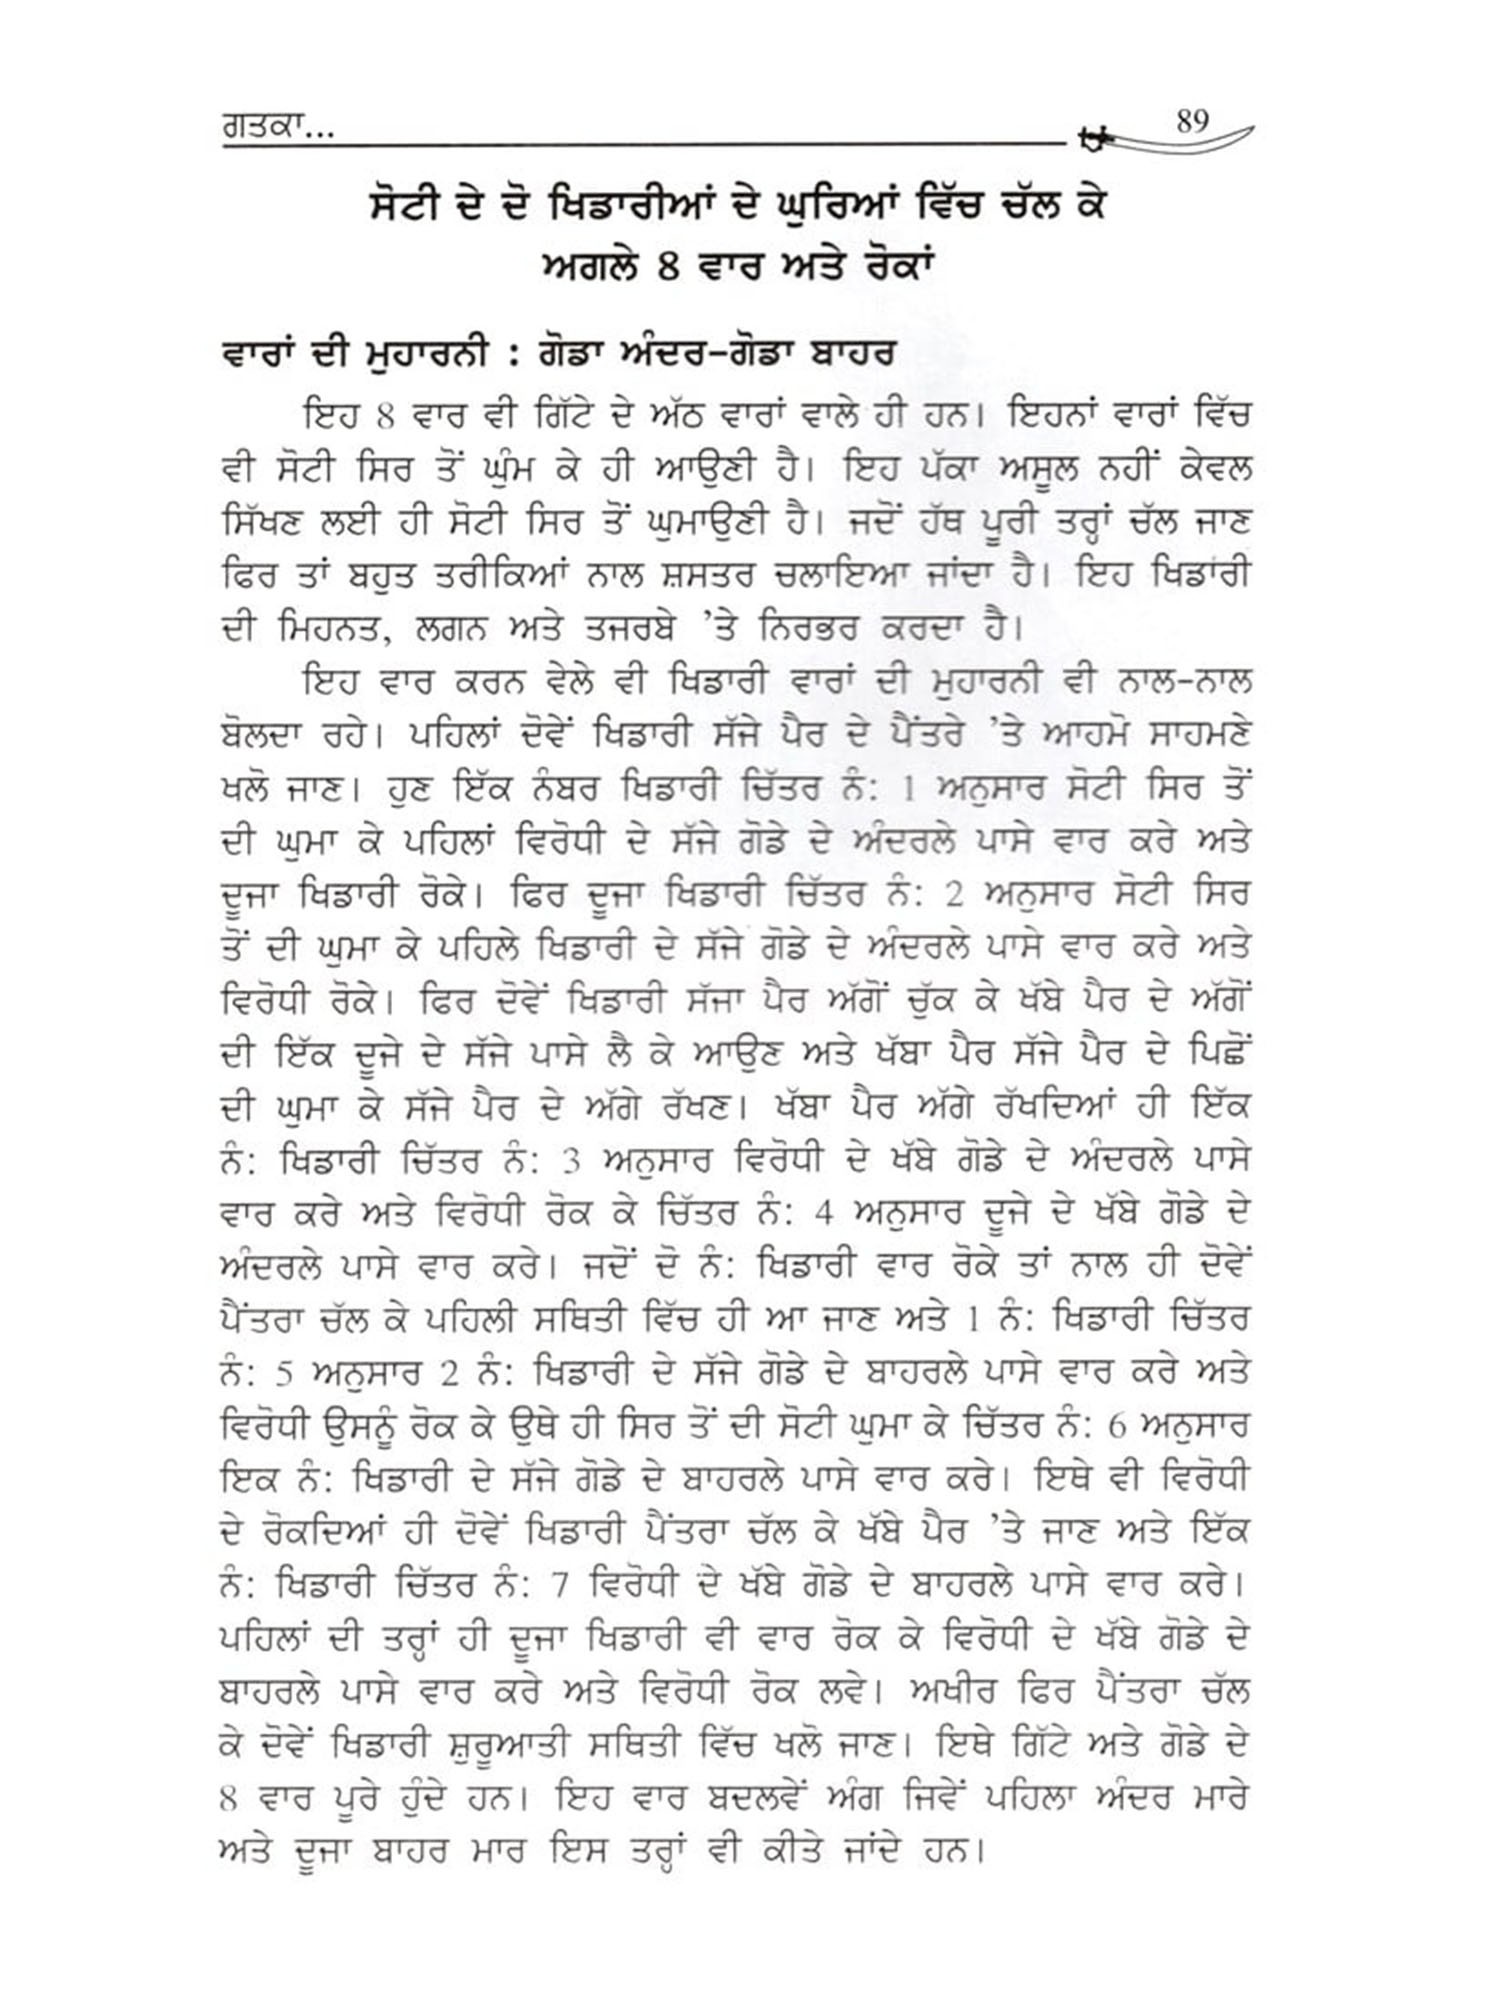 ਗਤਕਾ...
89
ਸੋਟੀ ਦੇ ਦੋ ਖਿਡਾਰੀਆਂ ਦੇ ਘੁਰਿਆਂ ਵਿੱਚ ਚੱਲ ਕੇ
ਅਗਲੇ 8 ਵਾਰ ਅਤੇ ਰੋਕਾਂ
ਵਾਰਾਂ ਦੀ ਮੁਹਾਰਨੀ : ਗੋਡਾ ਅੰਦਰ-ਗੋਡਾ ਬਾਹਰ
ਇਹ 8 ਵਾਰ ਵੀ ਗਿੱਟੇ ਦੇ ਅੱਠ ਵਾਰਾਂ ਵਾਲੇ ਹੀ ਹਨ। ਇਹਨਾਂ ਵਾਰਾਂ ਵਿੱਚ
ਵੀ ਸੋਟੀ ਸਿਰ ਤੋਂ ਘੁੰਮ ਕੇ ਹੀ ਆਉਣੀ ਹੈ। ਇਹ ਪੱਕਾ ਅਸੂਲ ਨਹੀਂ ਕੇਵਲ
ਸਿੱਖਣ ਲਈ ਹੀ ਸੋਟੀ ਸਿਰ ਤੋਂ ਘੁਮਾਉਣੀ ਹੈ। ਜਦੋਂ ਹੱਥ ਪੂਰੀ ਤਰ੍ਹਾਂ ਚੱਲ ਜਾਣ
ਫਿਰ ਤਾਂ ਬਹੁਤ ਤਰੀਕਿਆਂ ਨਾਲ ਸ਼ਸਤਰ ਚਲਾਇਆ ਜਾਂਦਾ ਹੈ। ਇਹ ਖਿਡਾਰੀ
ਦੀ ਮਿਹਨਤ, ਲਗਨ ਅਤੇ ਤਜਰਬੇ ’ਤੇ ਨਿਰਭਰ ਕਰਦਾ ਹੈ।
ਇਹ ਵਾਰ ਕਰਨ ਵੇਲੇ ਵੀ ਖਿਡਾਰੀ ਵਾਰਾਂ ਦੀ ਮੁਹਾਰਨੀ ਵੀ ਨਾਲ-ਨਾਲ
ਬੋਲਦਾ ਰਹੇ। ਪਹਿਲਾਂ ਦੋਵੇਂ ਖਿਡਾਰੀ ਸੱਜੇ ਪੈਰ ਦੇ ਪੈਂਤਰੇ ’ਤੇ ਆਹਮੋ ਸਾਹਮਣੇ
ਖਲੋ ਜਾਣ। ਹੁਣ ਇੱਕ ਨੰਬਰ ਖਿਡਾਰੀ ਚਿੱਤਰ ਨੰ: 1 ਅਨੁਸਾਰ ਸੋਟੀ ਸਿਰ ਤੋਂ
ਦੀ ਘੁਮਾ ਕੇ ਪਹਿਲਾਂ ਵਿਰੋਧੀ ਦੇ ਸੱਜੇ ਗੋਡੇ ਦੇ ਅੰਦਰਲੇ ਪਾਸੇ ਵਾਰ ਕਰੇ ਅਤੇ
ਦੂਜਾ ਖਿਡਾਰੀ ਰੋਕੇ। ਫਿਰ ਦੂਜਾ ਖਿਡਾਰੀ ਚਿੱਤਰ ਨੰ: 2 ਅਨੁਸਾਰ ਸੋਟੀ ਸਿਰ
ਤੋਂ ਦੀ ਘੁਮਾ ਕੇ ਪਹਿਲੇ ਖਿਡਾਰੀ ਦੇ ਸੱਜੇ ਗੋਡੇ ਦੇ ਅੰਦਰਲੇ ਪਾਸੇ ਵਾਰ ਕਰੇ ਅਤੇ
ਵਿਰੋਧੀ ਰੋਕੇ। ਫਿਰ ਦੋਵੇਂ ਖਿਡਾਰੀ ਸੱਜਾ ਪੈਰ ਅੱਗੋਂ ਚੁੱਕ ਕੇ ਖੱਬੇ ਪੈਰ ਦੇ ਅੱਗੋਂ
ਦੀ ਇੱਕ ਦੂਜੇ ਦੇ ਸੱਜੇ ਪਾਸੇ ਲੈ ਕੇ ਆਉਣ ਅਤੇ ਖੱਬਾ ਪੈਰ ਸੱਜੇ ਪੈਰ ਦੇ ਪਿਛੋਂ
ਦੀ ਘੁਮਾ ਕੇ ਸੱਜੇ ਪੈਰ ਦੇ ਅੱਗੇ ਰੱਖਣ। ਖੱਬਾ ਪੈਰ ਅੱਗੇ ਰੱਖਦਿਆਂ ਹੀ ਇੱਕ
ਨੰ: ਖਿਡਾਰੀ ਚਿੱਤਰ ਨੰ: 3 ਅਨੁਸਾਰ ਵਿਰੋਧੀ ਦੇ ਖੱਬੇ ਗੋਡੇ ਦੇ ਅੰਦਰਲੇ ਪਾਸੇ
ਵਾਰ ਕਰੇ ਅਤੇ ਵਿਰੋਧੀ ਰੋਕ ਕੇ ਚਿੱਤਰ ਨੰ: 4 ਅਨੁਸਾਰ ਦੂਜੇ ਦੇ ਖੱਬੇ ਗੋਡੇ ਦੇ
ਅੰਦਰਲੇ ਪਾਸੇ ਵਾਰ ਕਰੇ। ਜਦੋਂ ਦੋ ਨੰ: ਖਿਡਾਰੀ ਵਾਰ ਰੋਕੇ ਤਾਂ ਨਾਲ ਹੀ ਦੋਵੇਂ
ਪੈਂਤਰਾ ਚੱਲ ਕੇ ਪਹਿਲੀ ਸਥਿਤੀ ਵਿੱਚ ਹੀ ਆ ਜਾਣ ਅਤੇ 1 ਨੰ: ਖਿਡਾਰੀ ਚਿੱਤਰ
ਨੰ: 5 ਅਨੁਸਾਰ 2 ਨੰ: ਖਿਡਾਰੀ ਦੇ ਸੱਜੇ ਗੋਡੇ ਦੇ ਬਾਹਰਲੇ ਪਾਸੇ ਵਾਰ ਕਰੇ ਅਤੇ
ਵਿਰੋਧੀ ਉਸਨੂੰ ਰੋਕ ਕੇ ਉਥੇ ਹੀ ਸਿਰ ਤੋਂ ਦੀ ਸੋਟੀ ਘੁਮਾ ਕੇ ਚਿੱਤਰ ਨੰ: 6 ਅਨੁਸਾਰ
ਇਕ ਨੰ: ਖਿਡਾਰੀ ਦੇ ਸੱਜੇ ਗੋਡੇ ਦੇ ਬਾਹਰਲੇ ਪਾਸੇ ਵਾਰ ਕਰੇ। ਇਥੇ ਵੀ ਵਿਰੋਧੀ
ਦੇ ਰੋਕਦਿਆਂ ਹੀ ਦੋਵੇਂ ਖਿਡਾਰੀ ਪੈਂਤਰਾ ਚੱਲ ਕੇ ਖੱਬੇ ਪੈਰ ’ਤੇ ਜਾਣ ਅਤੇ ਇੱਕ
ਨੰ: ਖਿਡਾਰੀ ਚਿੱਤਰ ਨੰ: 7 ਵਿਰੋਧੀ ਦੇ ਖੱਬੇ ਗੋਡੇ ਦੇ ਬਾਹਰਲੇ ਪਾਸੇ ਵਾਰ ਕਰੇ।
ਪਹਿਲਾਂ ਦੀ ਤਰ੍ਹਾਂ ਹੀ ਦੂਜਾ ਖਿਡਾਰੀ ਵੀ ਵਾਰ ਰੋਕ ਕੇ ਵਿਰੋਧੀ ਦੇ ਖੱਬੇ ਗੋਡੇ ਦੇ
ਬਾਹਰਲੇ ਪਾਸੇ ਵਾਰ ਕਰੇ ਅਤੇ ਵਿਰੋਧੀ ਰੋਕ ਲਵੇ। ਅਖੀਰ ਫਿਰ ਪੈਂਤਰਾ ਚੱਲ
ਕੇ ਦੋਵੇਂ ਖਿਡਾਰੀ ਸ਼ੁਰੂਆਤੀ ਸਥਿਤੀ ਵਿੱਚ ਖਲੋ ਜਾਣ। ਇਥੇ ਗਿੱਟੇ ਅਤੇ ਗੋਡੇ ਦੇ
8 ਵਾਰ ਪੂਰੇ ਹੁੰਦੇ ਹਨ। ਇਹ ਵਾਰ ਬਦਲਵੇਂ ਅੰਗ ਜਿਵੇਂ ਪਹਿਲਾ ਅੰਦਰ ਮਾਰੇ
ਅਤੇ ਦੂਜਾ ਬਾਹਰ ਮਾਰ ਇਸ ਤਰ੍ਹਾਂ ਵੀ ਕੀਤੇ ਜਾਂਦੇ ਹਨ।